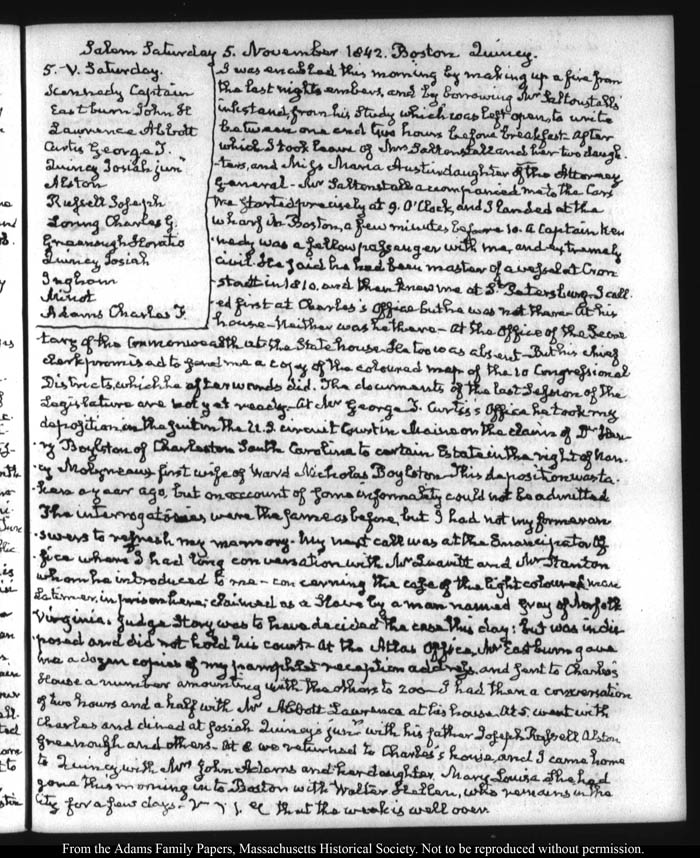 Salem Saturday 5. November 1842. Boston Quincy.
5.-V. Saturday.
Kennedy Captain
Eastburn John H
Lawrence Abbott
Curtis George T.
Quincy Josiah junr
Alston
Russell Joseph
Loring Charles G.
Greenough Horatio
Quincy Josiah
Ingham
Minot
Adams Charles F.
I was enabled this morning by making up a fire from
the last nights embers, and by borrowing Mr Saltonstall's
inkstand, from his Study which was left open, to write
between one and two hours before breakfast. After
which I took leave of Mrs Saltonstall and her two daugh-
ters, and Miss Maria Austin daughter of the Attorney
General - Mr Saltonstall accompanied me to the Cars
We started precisely at 9. O'Clock, and I landed at the
wharf in Boston, a few minutes before 10. A Captain Ken-
nedy was a fellow passenger with me, and extremely
civil. He said he had been master of a vessel at Cron-
stadt in 1810. and then knew me at St. Petersburg. I call-
ed first at Charles's Office but he was not there - At his
house - Neither was he there - At the Office of the Secre-
tary of the Commonwealth at the State house. He too was absent - But his chief
clerk promised to send me a copy of the coloured map of the 10 Congressional
Districts, which he afterwards did. The documents of the last Session of the
Legislature are not yet ready - At Mr George T. Curtis's Office he took my
deposition in the suit in the U.S. circuit Court in Maine on the claim of Dr Hen-
ry Boylston of Charleston South Carolina to certain Estate in the right of Nan-
cy Molyneaux first wife of Ward Nicholas Boylston. This deposition was ta-
ken a year ago, but on account of some informality could not be admitted
The interrogatories were the same as before, but I had not my former an-
swers to refresh my memory. My next call was at the Emancipator Of-
fice where I had long conversation with Mr Leavitt and Mr Stanton
whom he introduced to me - concerning the case of the light coloured man
Latimer, in prison here; claimed as a Slave by a man named Gray of Norfolk
Virginia. Judge Story was to have decided the case this day; but was indis-
posed and did not hold his court - At the Atlas Office, Mr Eastburn gave
me a dozen copies of my pamphlet reception address, and sent to Charles's
House a number amounting with the others to 200 - I had then a conversation
of two hours and a half with Mr Abbott Lawrence at his house. At 5. went with
Charles and dined at Josiah Quincy's junr with his father Joseph Russell Alston
Greenough and others. At 8 we returned to Charles's house, and I came home
to Quincy with Mrs John Adams and her daughter, Mary Louisa. She had
gone this morning in to Boston with Walter Hellen, who remains in the
City for a few days. that the week is well over.
From the Adams Family Papers, Massachusetts Historical Society. Not to be reproduced without permission.